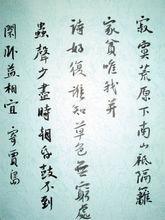 寂寞荒原下南山祗隔籬
家貧唯我并
詩好復誰知草色無窮處
蟲聲少盡時朝昏鼓不到
閑卧益相宜 寄賈島